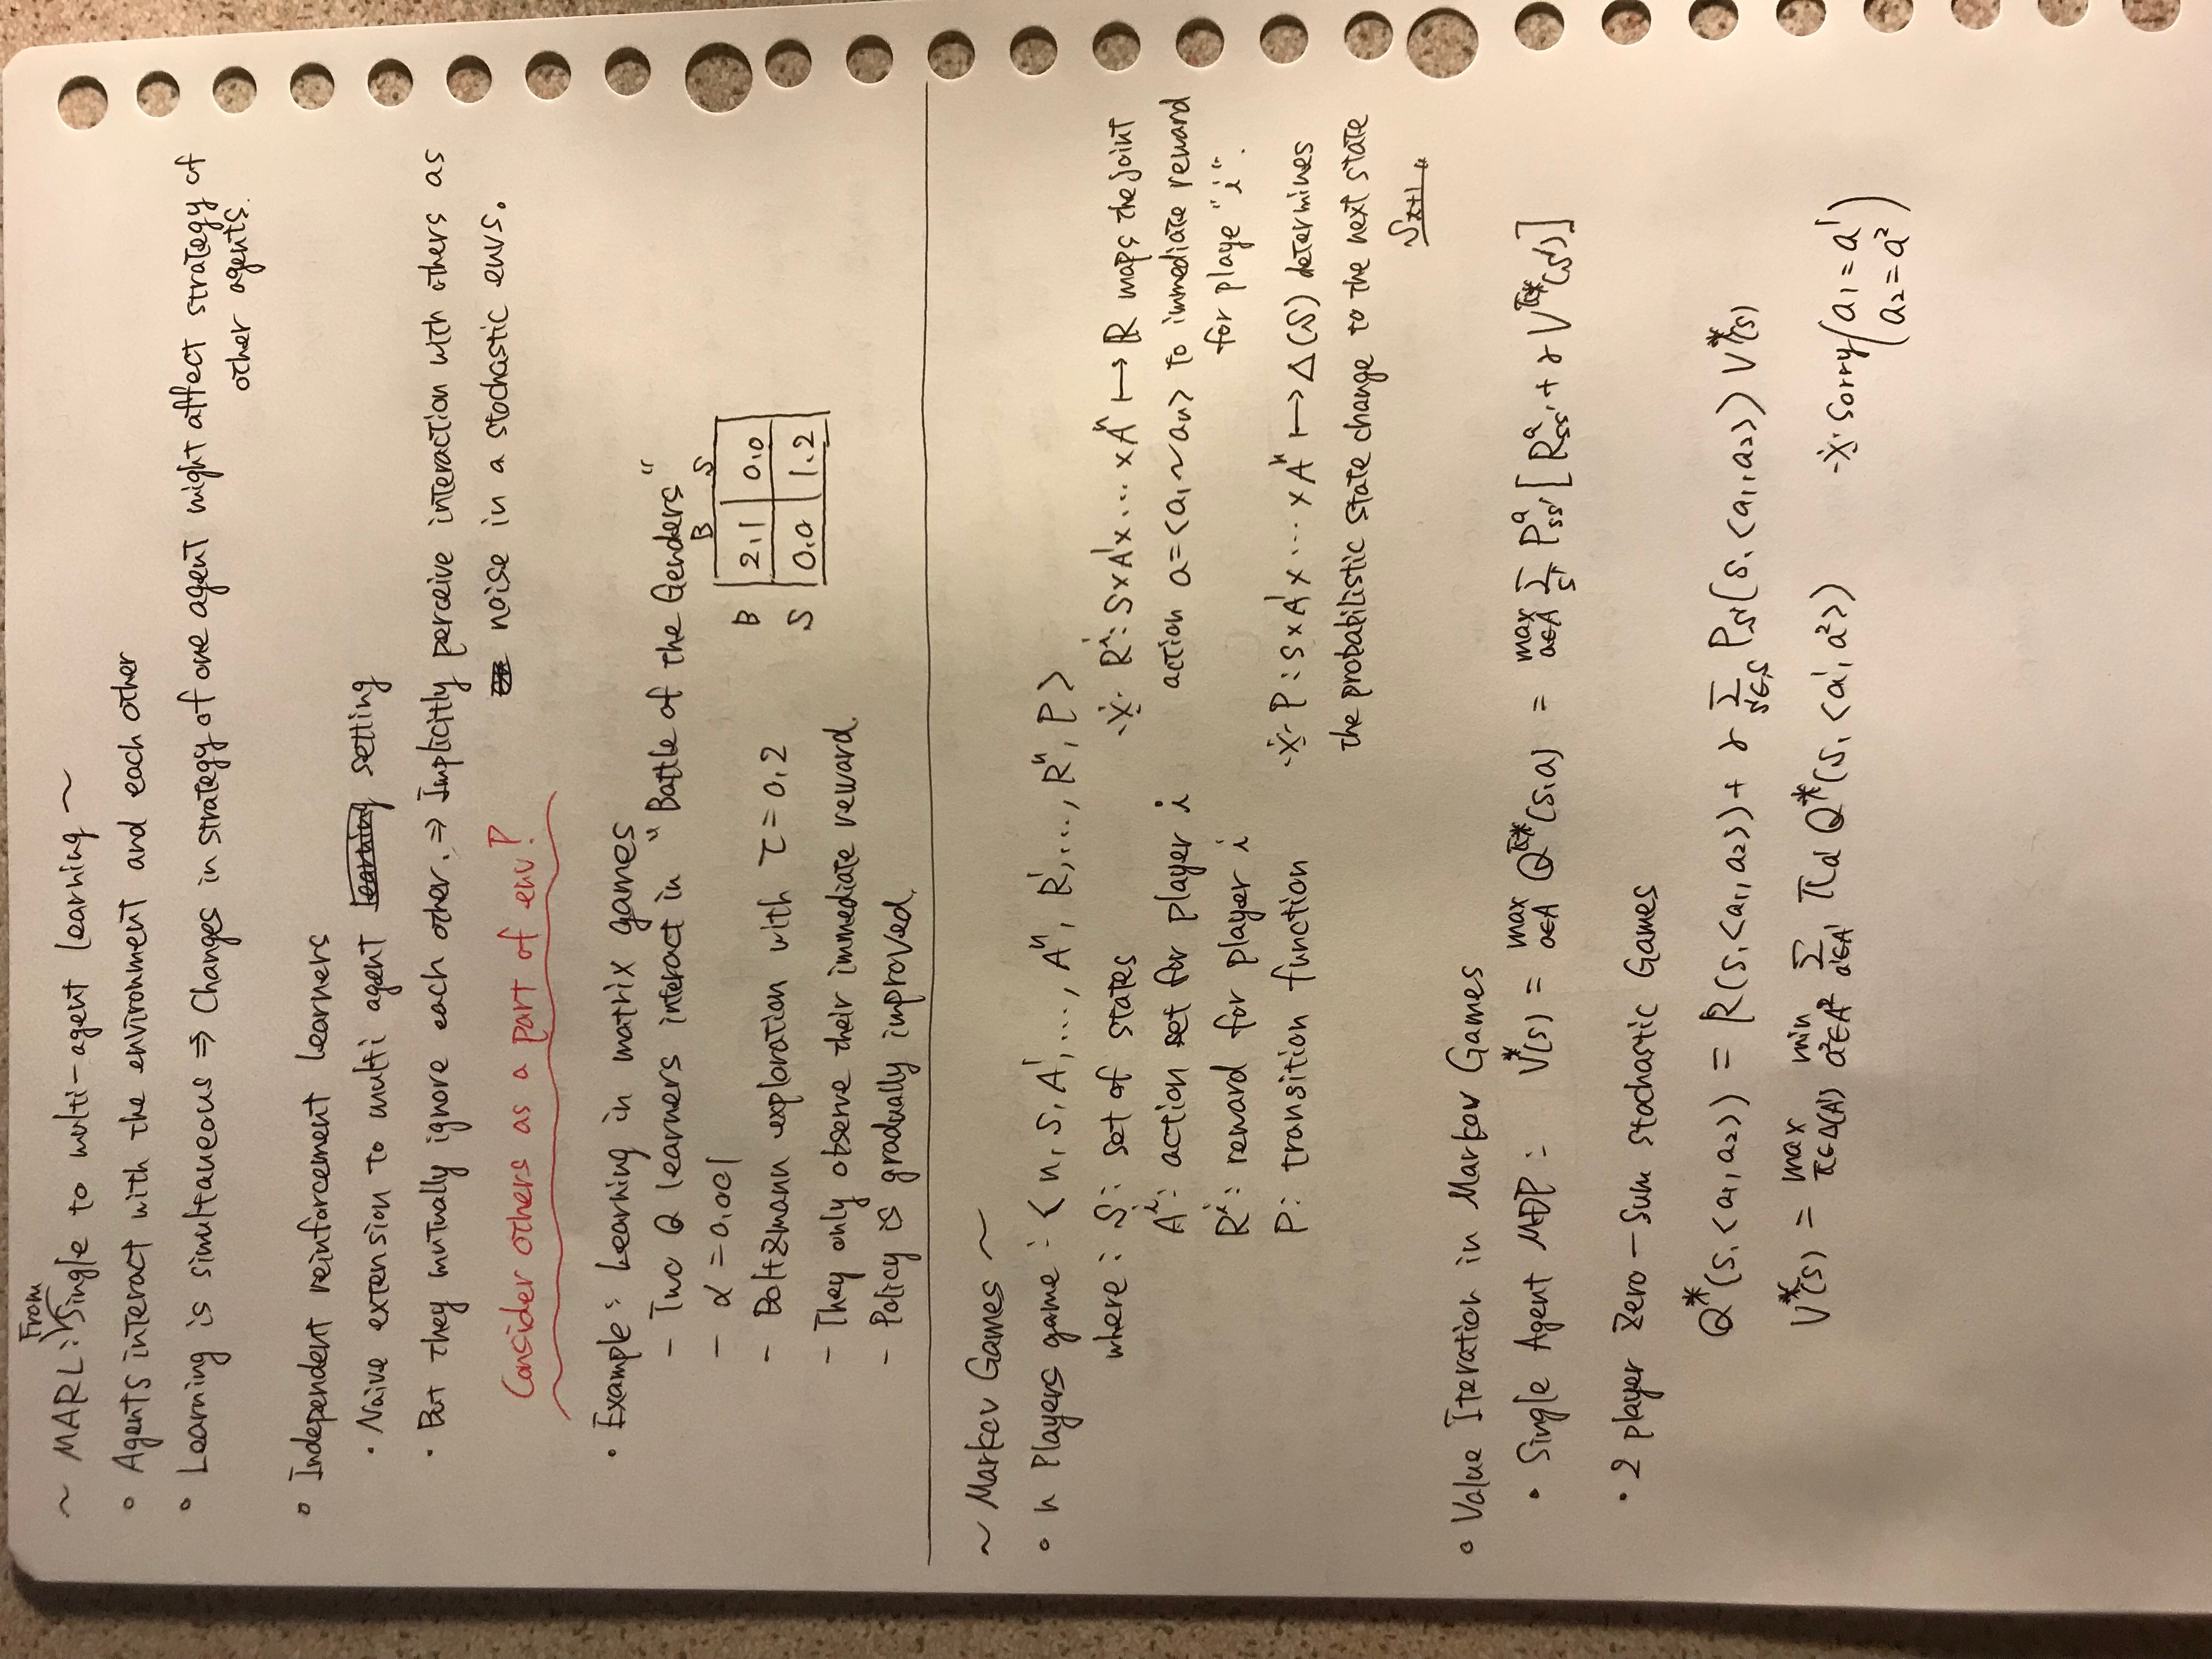 ~ MARL: From Single to multi-agent learning ~
∘ Agents interact with the environment and each other
∘ Learning is simultaneous ⇒ Changes in strategy of one agent might affect strategy of
other agents.
∘ Independent reinforcement learners
・Naive extension to multi agent learning setting
・But they mutually ignore each other. ⇒ Implicitly perceive interaction with others as
noise in a stochastic envs.
Consider others as a part of env?
・Example: Learning in matrix games
- Two Q learners interact in "Battle of the Genders"
- α = 0.001
B S
- Boltzmann exploration with τ = 0.2
B 2,1 0,0
S 0,0 1,2
- They only observe their immediate reward.
- Policy is gradually improved.
~ Markov Games ~
∘ n Players game : < n, S, A¹, ..., Aⁿ, R¹, ..., Rⁿ, P >
where : S: set of states
Aⁱ: action set for player i
Rⁱ: reward for player i
P: transition function
※ Rⁱ: S×A¹×...×Aⁿ ↦ ℝ maps the joint
action a=<a₁~aₙ> to immediate reward
for playe "i".
※ P: S×A¹×...×Aⁿ ↦ Δ(S) determines
the probabilistic state change to the next state
Sₜ₊₁〃
∘ Value Iteration in Markov Games
・Single Agent MDP : V*(s) = max a∈A Q^π*(s,a) = max a∈A Σ s' P^a ss' [R^a ss' + γ V^π*(s')]
・2 player Zero-Sum stochastic Games
Q*(s,<a₁,a₂>) = R(s,<a₁,a₂>) + γ Σ s'∈S P s'(s,<a₁,a₂>) V*(s)
V*(s) = max π∈Δ(A¹) min a²∈A² Σ a¹∈A¹ π a¹ Q*(s,<a¹,a²>)
※ Sorry (a₁ = a¹
a₂ = a²)